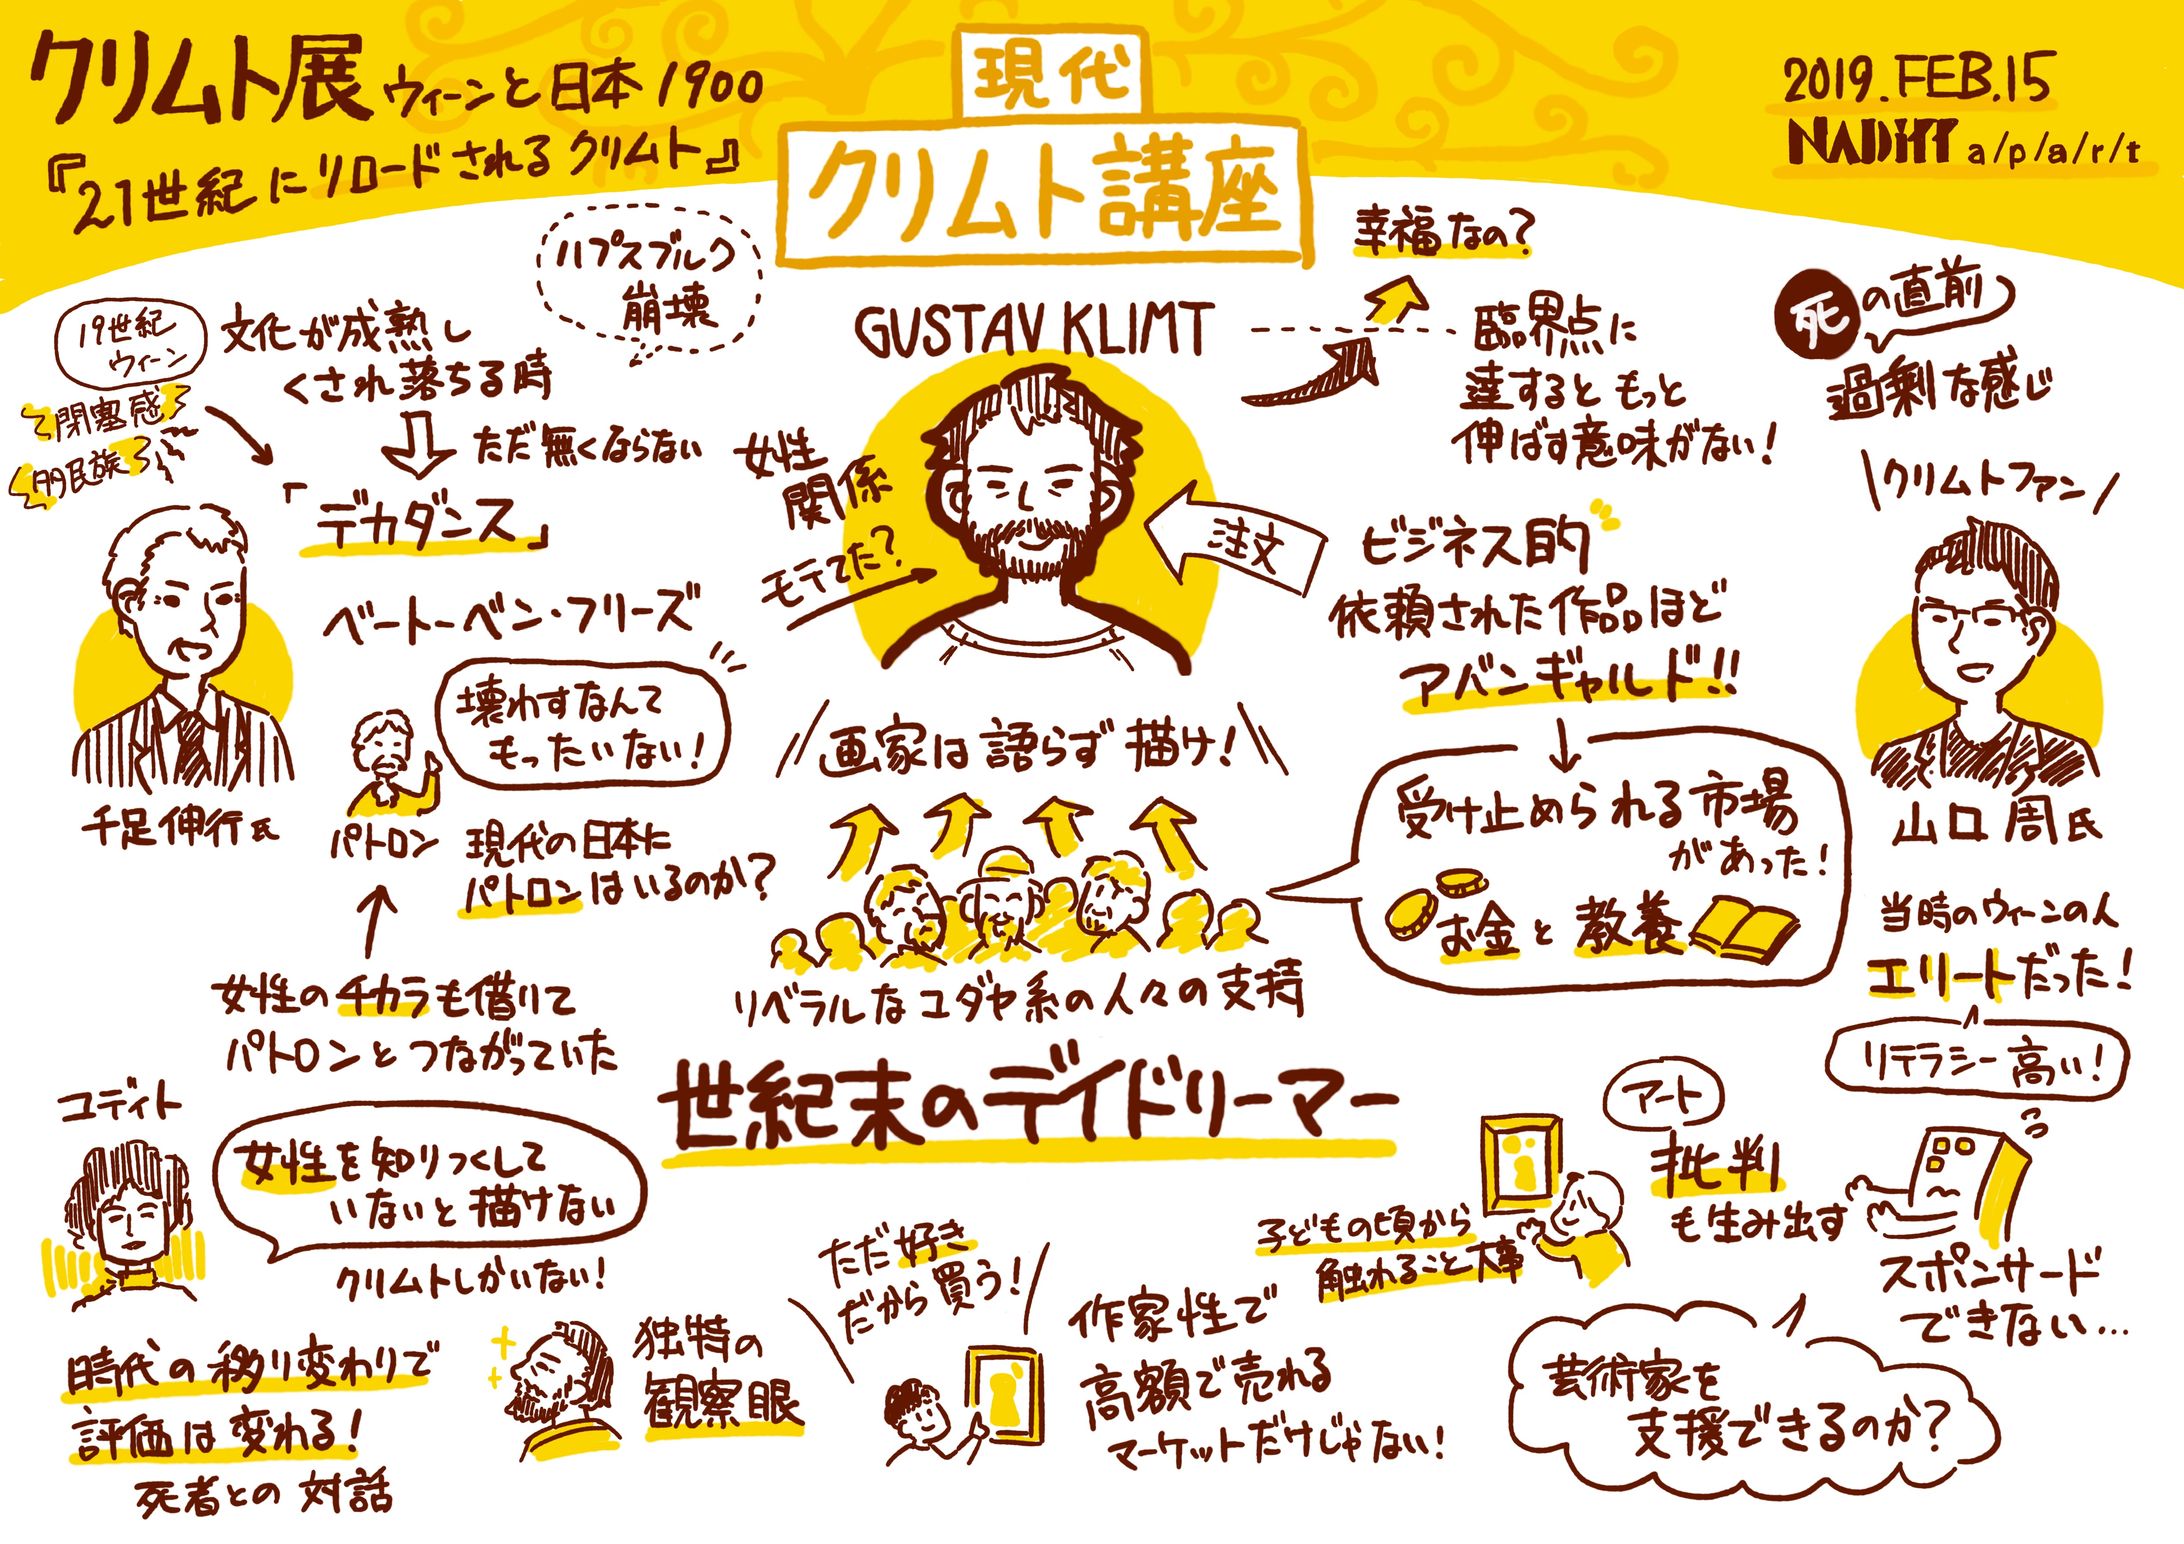 クリムト展 ウィーンと日本 1900
『21世紀にリロードされるクリムト』
現代
クリムト講座
2019.FEB.15
NADiff a/p/a/r/t
19世紀
ウィーン
閉塞感
多民族
文化が成熟し
くされ落ちる時
ハプスブルク
崩壊
ただ無くならない
「デカダンス」
千足伸行氏
ベートーベン・フリーズ
壊わすなんて
もったいない!
パトロン
現代の日本に
パトロンはいるのか?
女性のチカラも借りて
パトロンとつながっていた
ユディト
女性を知りつくして
いないと描けない
クリムトしかいない!
時代の移り変わりで
評価は変わる!
死者との対話
独特の
観察眼
GUSTAV KLIMT
女性
関係
モテてた?
注文
画家は語らず描け!
リベラルなユダヤ系の人々の支持
世紀末のデイドリーマー
幸福なの?
臨界点に
達するともっと
伸ばす意味がない!
ビジネス的
依頼された作品ほど
アバンギャルド!!
受け止められる市場
があった!
お金と教養
死の直前
過剰な感じ
クリムトファン
山口周氏
当時のウィーンの人
エリートだった!
リテラシー高い!
ただ好き
だから買う!
作家性で
高額で売れる
マーケットだけじゃない!
子どもの頃から
触れること大事
アート
批判
も生み出す
スポンサード
できない…
芸術家を
支援できるのか?